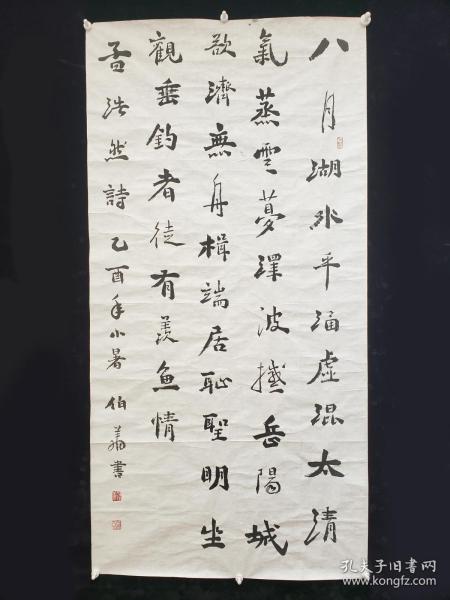 八月湖水平涵虛混太清
氣蒸雲夢澤波撼岳陽城
欲濟無舟楫端居恥聖明坐
觀垂釣者徒有羨魚情
孟浩然詩 乙酉年小暑 伯書
孔夫子旧书网
www.kongfz.com